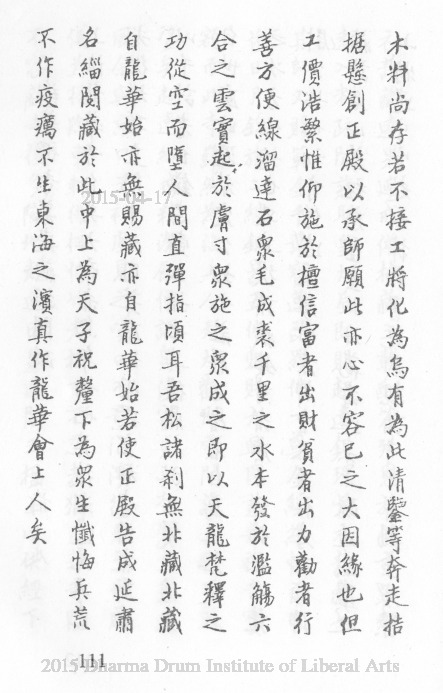 木料尚存若不接工將化為烏有為此清鑒等奔走拮
据懸創正殿以承師願此亦心不容已之大因緣也但
工價浩繁惟仰施於檀信富者出財貧者出力勸者行
善方便線溜達石衆毛成裘千里之水本發於濫觴六
合之雲實起於膚寸衆施之衆成之即以天龍梵釋之
功從空而墮人間直彈指頃耳吾松諸剎無北藏北藏
自龍華始亦無賜藏亦自龍華始若使正殿告成延肅
名緇閱藏於此中上為天子祝釐下為衆生懺悔兵荒
不作疫癘不生東海之濱真作龍華會上人矣
2015-04-17
111
2015 Dharma Drum Institute of Liberal Arts